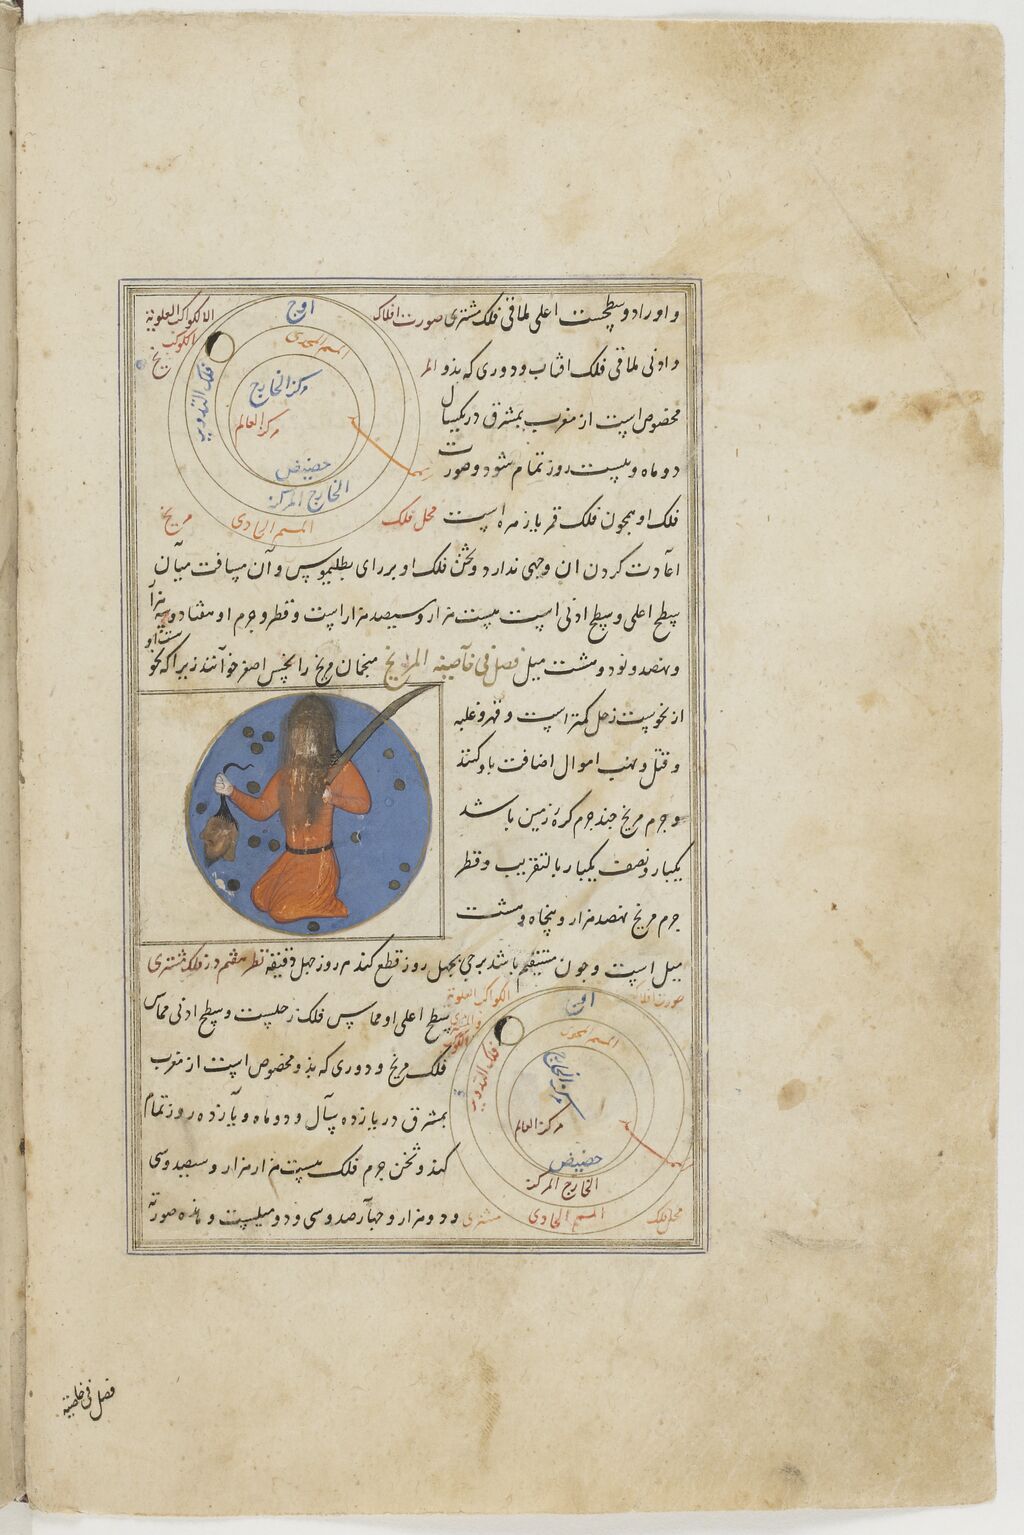 و او را دو سطحست اعلی لماقی فلک مشتری صورت افلاک
الکواکب العلویة
اوج
و ادنی لماقی فلک افتاب و دوری که بذو
المتمم المحوی
مرکز الخارج
فلک التدویر
مخصوص است از مغرب بمشرق در یکسال
مرکز العالم
دو ماه و بیست روز تمام شود و صورت
حضیض
الخارج المرکز
فلک او همچون فلک قمر باز مره است محل فلک
المتمم الحاوی
مریخ
اعادت کردن ان وجهی ندارد و ثخن فلک او بررای بطلیموس و آن مسافت میان
سطح اعلی و سطح ادنی است بیست هزار و سیصد هزار است و قطر و جرم او هفتاد و سه هزار
و نهصد و نود و هشت میل فصل فی خاصیة المریخ منجمان مریخ را نحس اصغر خوانند زیرا که نحوست او
از نحوست زحل کمتر است و قهر و غلبه
و قتل و نهب اموال اضافت باو کنند
و جرم مریخ چند جرم کره زمین باشد
یکبار و نصف یکبار بالتقریب و قطر
جرم مریخ نهصد هزار و پنجاه و هشت
میل است و چون مستقیم باشد برجی بچهل روز قطع کند هر روز چهل دقیقه نظر هفتم در فلک مشتری
الکواکب العلویة
اوج
سطح اعلی او مماس فلک زحلست و سطح ادنی مماس
فلک التدویر
مرکز الخارج
فلک مریخ و دوری که بذو مخصوص است از مغرب
بمشرق در یازده سال و دو ماه و یازده روز تمام
مرکز العالم
کند و ثخن جرم فلک بیست هزار هزار و سیصد و سی
حضیض
الخارج المرکز
و دو هزار و چهارصد و سی و دو میلست و هذه صورته
مشتری
المتمم الحاوی
محل فلک
فصل فی خاصیة